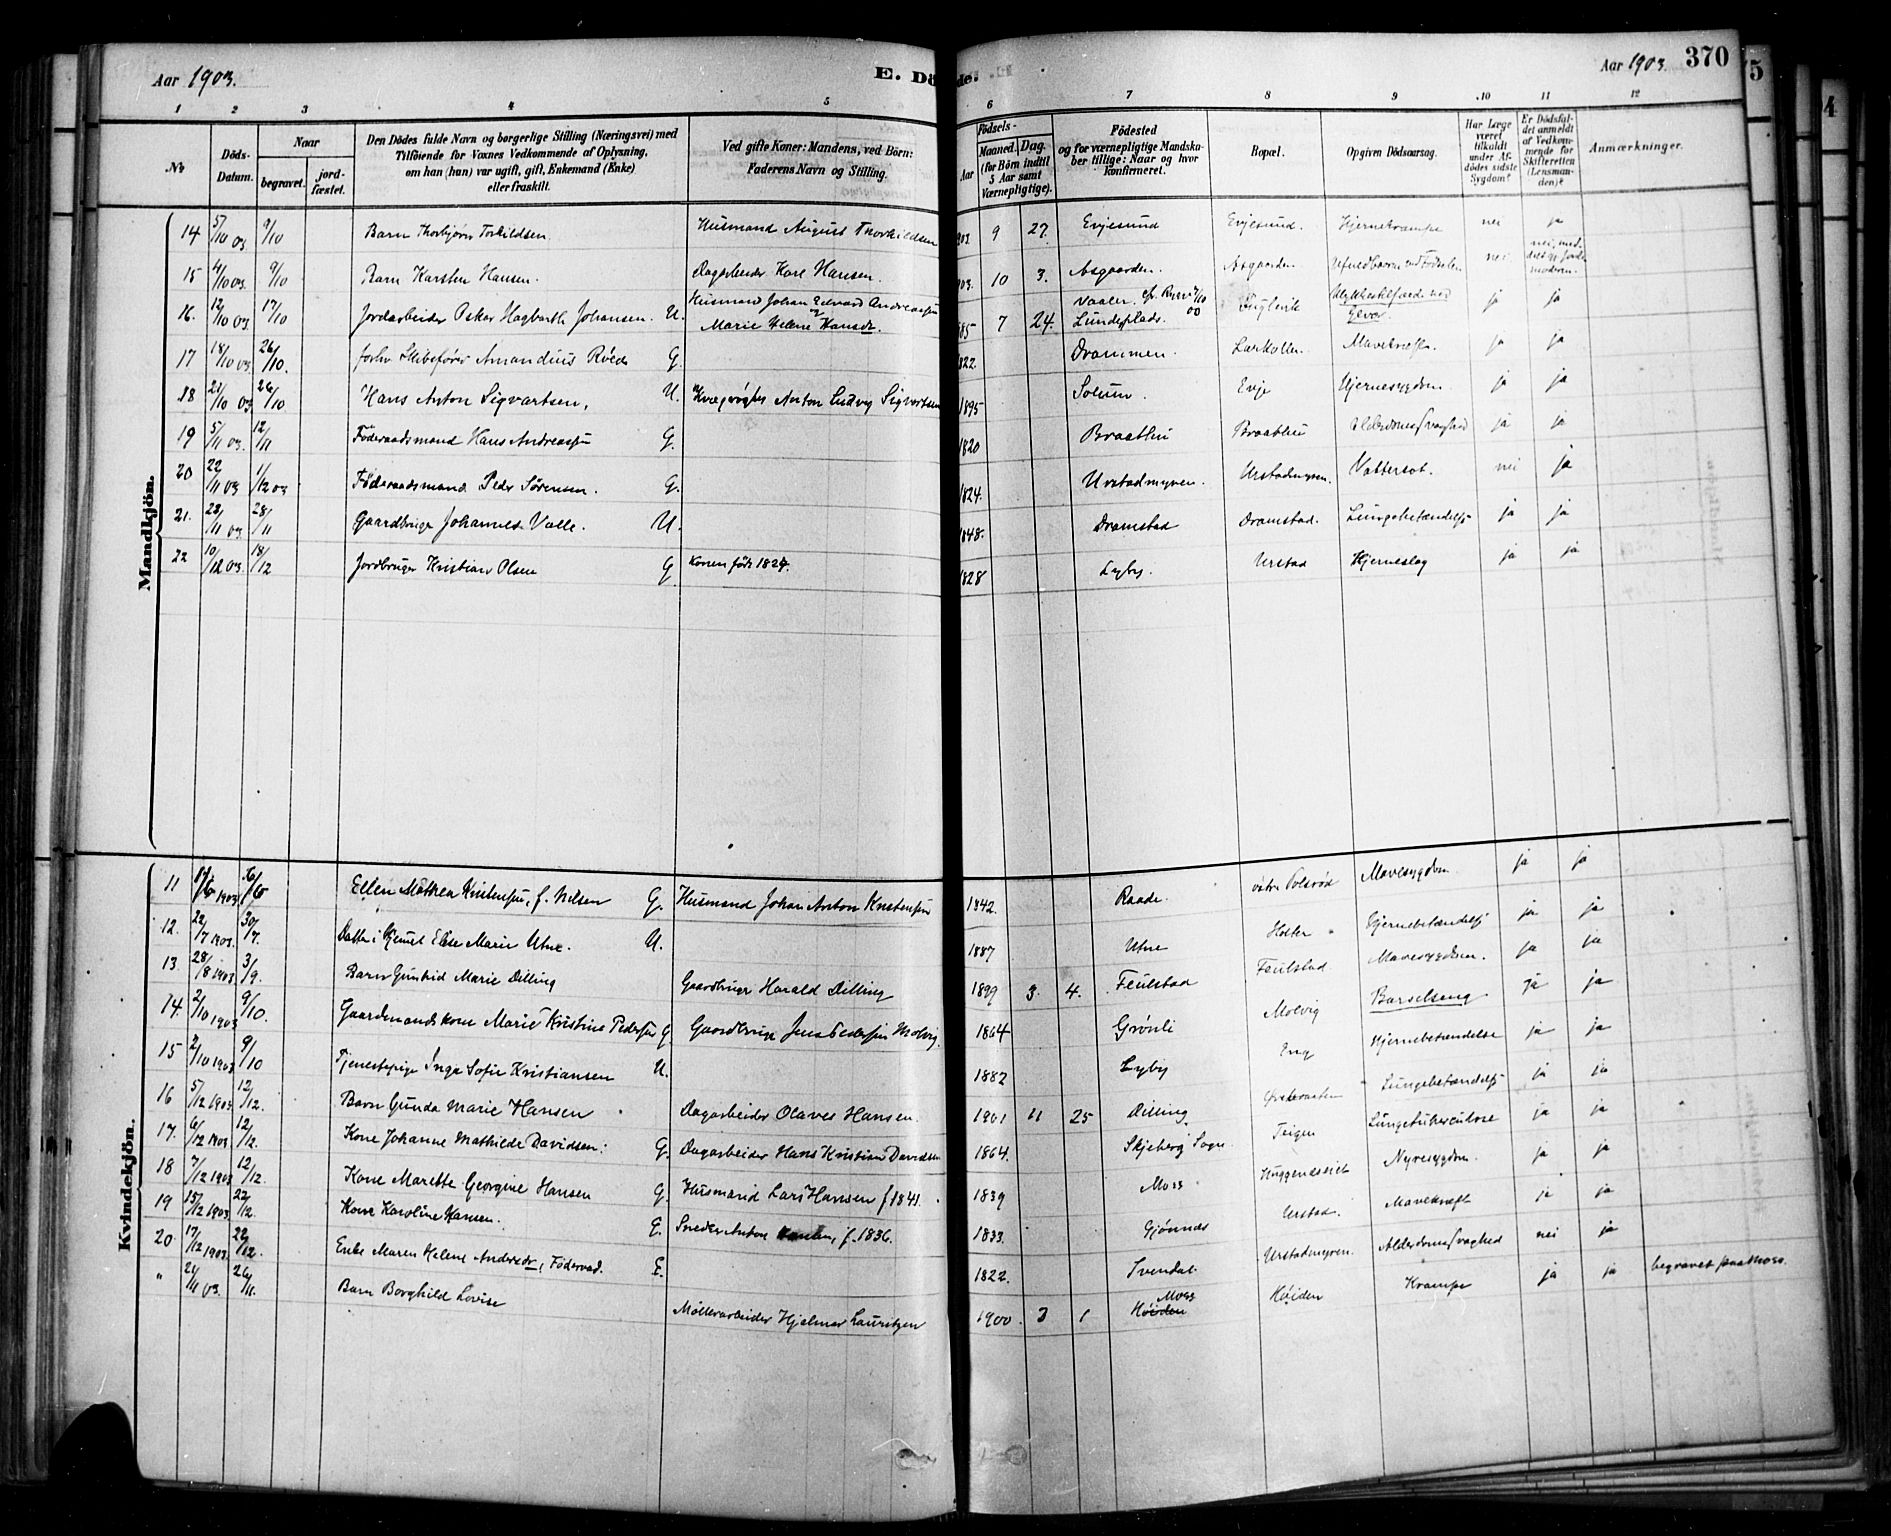 Aar 1903. E. Dö de. Aar 1903. 370
1 2 3 4 5 6 7 8 9 10 11 12
No Döds-Datum. Naar begravet. jord-fæstet. Den Dödes fulde Navn og borgerlige Stilling (Næringsvei) med Tilföiende for Voxnes Vedkommende af Oplysning, om han (hun) var ugift, gift, Enkemand (Enke) eller fraskilt. Ved gifte Koner: Mandens, ved Börn: Faderens Navn og Stilling. Födsels- Aar Maaned. Dag. (for Börn indtil 5 Aar samt Værnepligtige). Födested og for værnepligtige Mandska-ber tillige: Naar og hvor konfirmeret. Bopæl. Opgiven Dödsaarsag. Har Læge været tilkaldt under Af-dödes sidste Sygdom? Er Dödsfal-det anmeldt af Vedkom-mende for Skifteretten (Lensman-den)? Anmærkninger.
Mandkjön.
14 5/10 03 9/10 Barn Thorbjørn Torkildsen. Husmand August Thorkildsen 903 9 27. Evjesund Evjesund. Hjernekrampe nei ja
15 4/10 03. 9/10 Barn Karsten Hansen. Dagarbeider Karl Hansen. 903. 10 3. Asgaarden. Asgaarden nei
16. 12/10 03 17/10 Jordarbeider Oskar Hagbarth Johansen. U. Husmand Johan Edvard Andreassen Marie Helene Hansdr. 885 7 24. Vaaler. Lundeplads. Fuglevik ja ja
17 18/10 03. 26/10. forhv Skibsfører Amandius Röed G. 822. Drammen. Larkollen. Mavekræft. ja ja
18 21/10 03 26/10 Hans Anton Sigvartsen, U. Kvægrøgter Anton Ludvig Sigvartsen 1895 Solum. Evje Hjernesygdom. ja ja
19 5/11 03. 12/11 Föderaadsmand Hans Andreassen G. 1820 Braathen Braathen Alderdomssvaghed ja ja
20 22/11 03 1/12 03 Föderaadsmand Peder Sörensen. G. 1824. Urstadmyren. Urstadmyren. Vattersot. nei ja
21. 23/11 03. 28/11 Gaardbruger Johannes Valle. U. 1848. Dramstad Dramstad. Lungebetændelse ja ja
22 10/12 03. 18/12 Jordbruger Kristian Olsen G Konen född 1824. 1828 Lyby. Urstad Hjerneslag ja ja
Kvindekjön.
11 1903 Ellen Mathea Kristensen, f. Nilsen G. Husmand Johan Anton Kristensen 1842. Raade. Mavesygdom. ja ja
12. 22/7 1903. 30/7. Datter i Hjemmet Elise Marie Utne. U. 1887 Utne Holter Hjernebetændelse ja ja
13 28/8 1903 3/9. Barn Gunhild Marie Dilling Gaardbruger Harald Dilling 1899 3. 4. Feulstad Feulstad Mavesygdom. ja ja
14. 2/10 1903 9/10. Gaardmandskone Marie Kristine Pedersen G Gaardbruger Jens Pedersen Molvig. 1864 Grönli Molvig Barselseng ja ja
15 2/10 1903 9/10 Tjenestepige Inga Sofie Kristiansen U. 1882 Lyby Eng Hjernebetændelse ja ja
16 5/12 1903 12/12. Barn Gunda Marie Hansen Dagarbeider Olaves Hansen. 1901 11 25 Dilling Lungebetændelse ja ja
17. 6/12 1903. 12/12. Kone Johanne Mathilde Davidsen. G. Dagarbeider Hans Kristian Davidsen 1864. Skjeberg Sogn Teigen Lungetuberculose ja ja
18 7/12 1903 12/12. Kone Marette Georgine Hansen G. Husmand Lars Hansen f. 1841. 1839 Moss Huggenæseiet Nyresygdom. ja ja
19 15/12 1903 22/12. Kone Karoline Hansen. G. Snedker Anton f. 1836. 1833. Gjönnes Urstad. Mavekræft ja ja
20 17/12 1903. 22/12. Enke Maren Helene Andersdr, Föderaad. E. 1822. Svendal Urstadmyren. Alderdomssvaghed nei ja
" 21/11 03. 26/11. Barn Borghild Lovise Möllerarbeider Hjelmar Lauritzen 1900. 3 1 Moss Höiden Höiden Krampe ja ja begravet paa Moss.